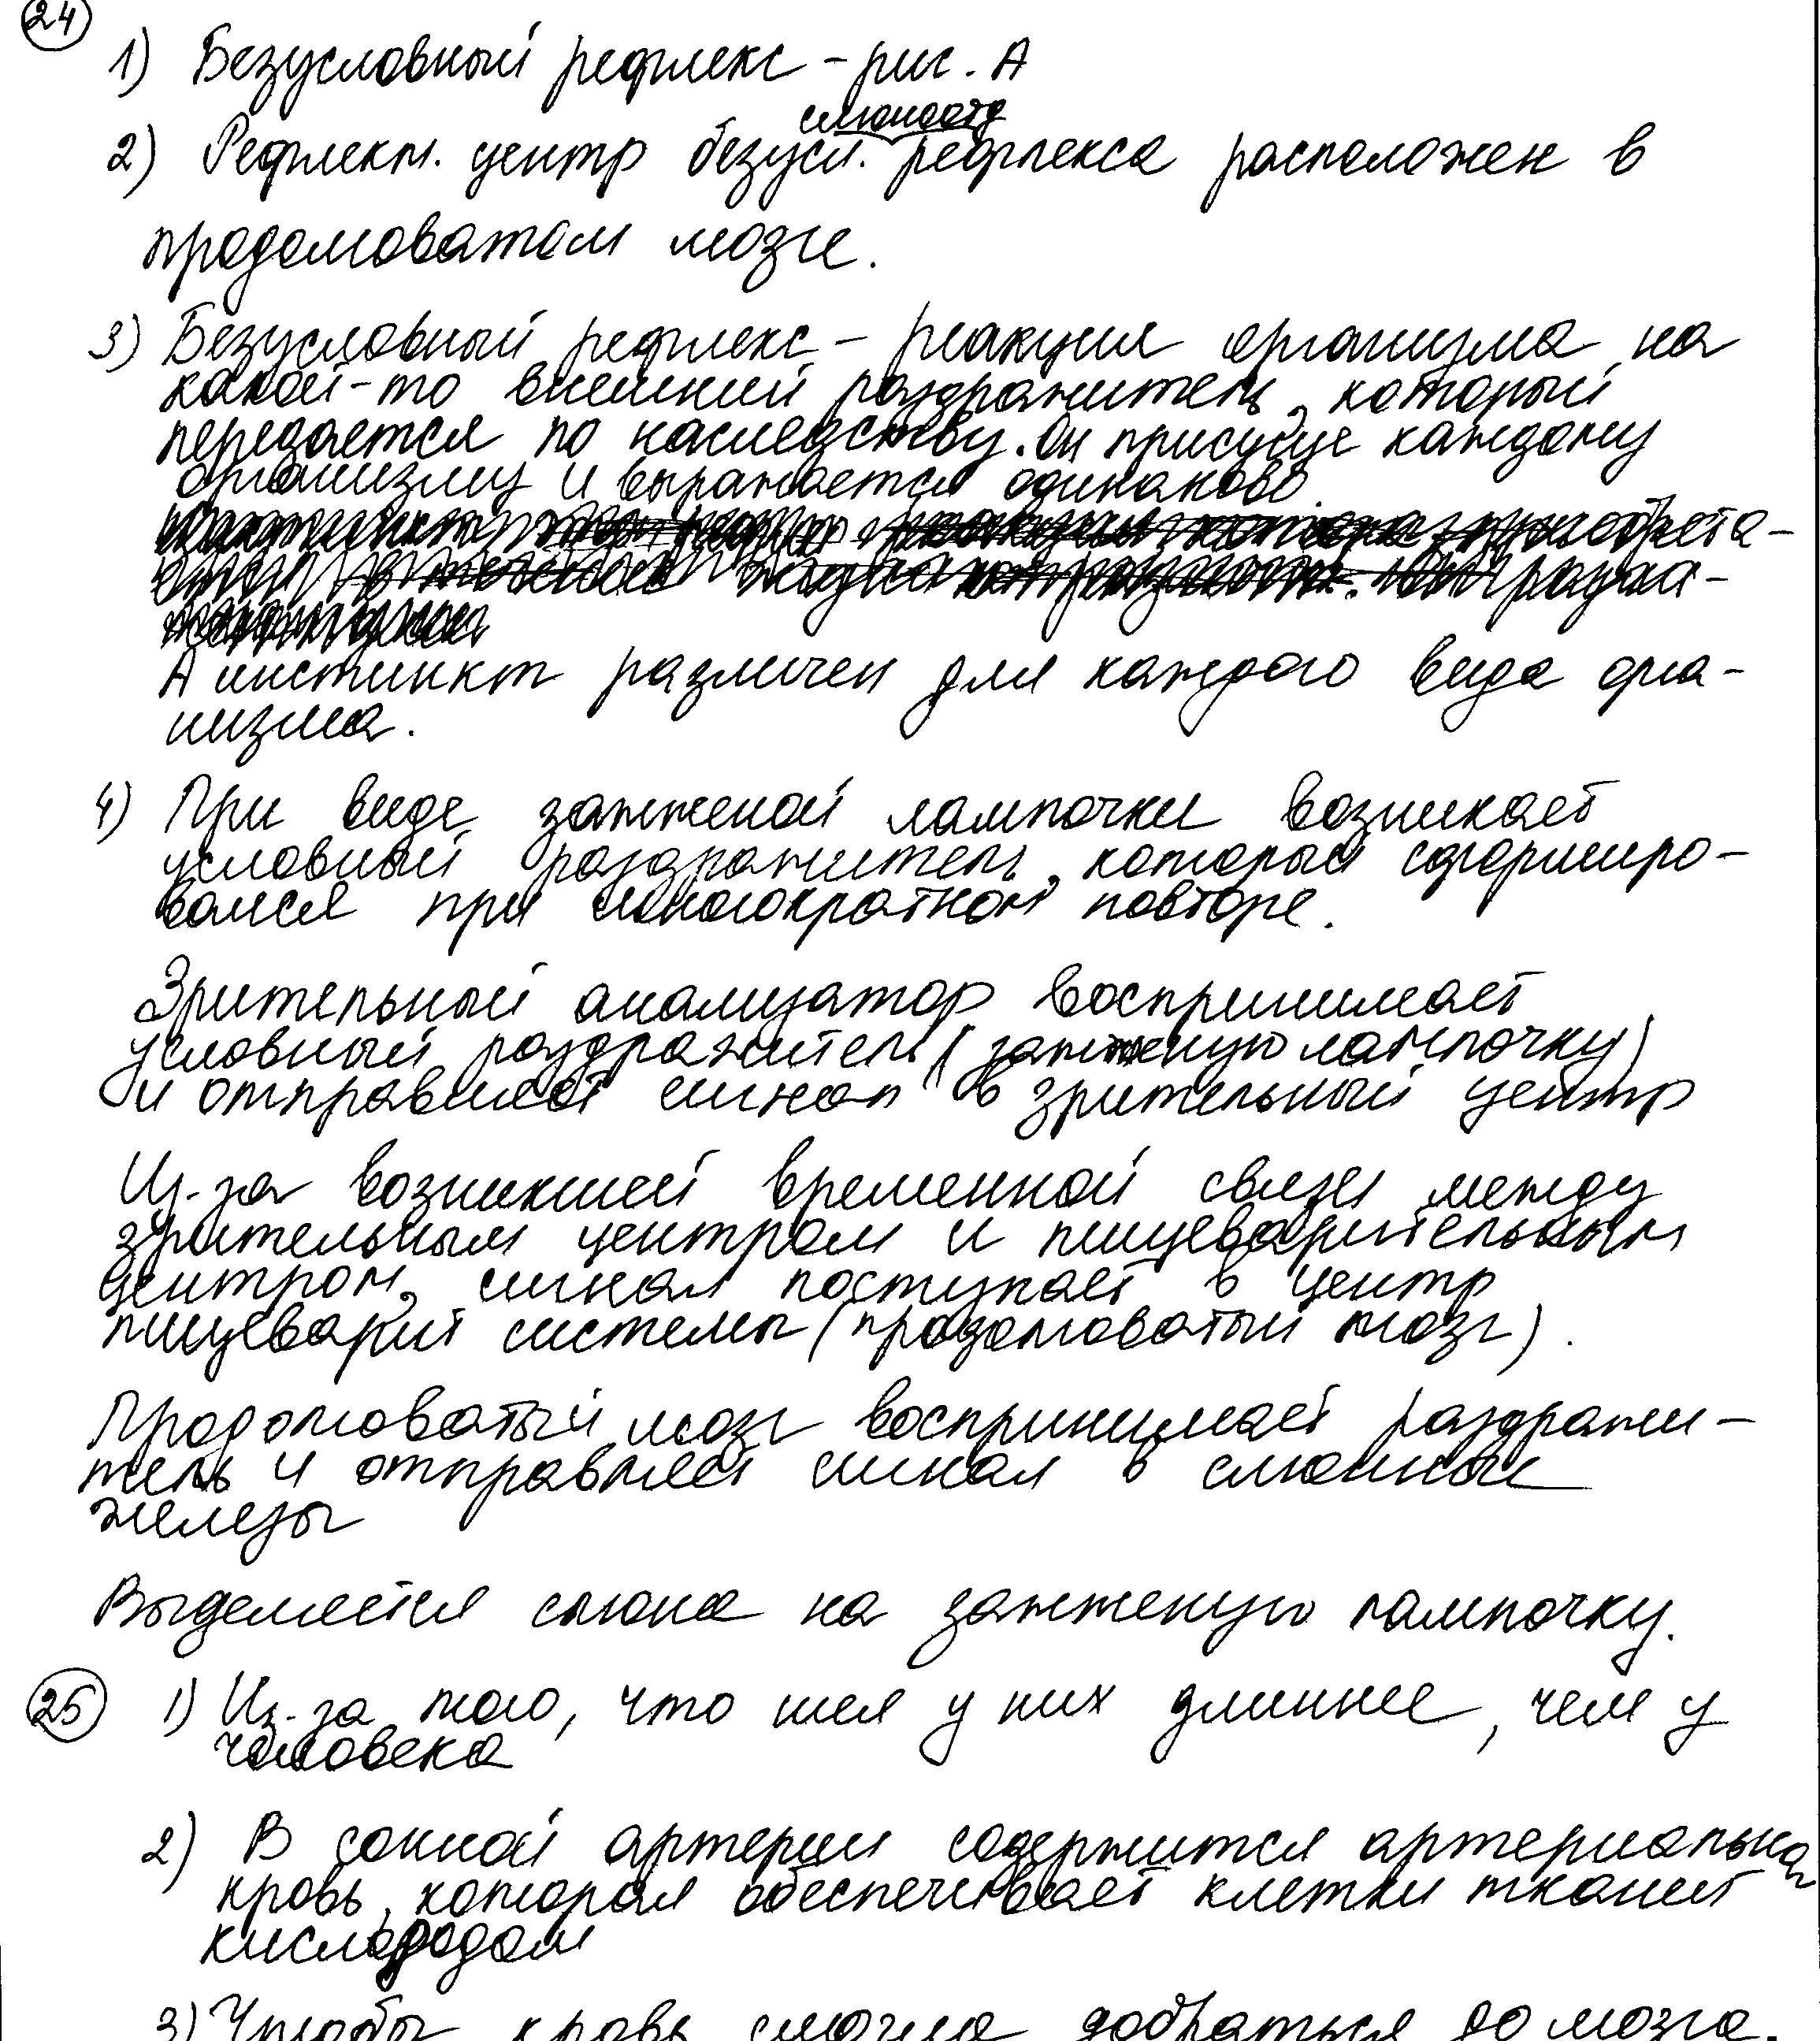 24
1) Безусловный рефлекс – рис. А
слюноотд
2) Рефлект. центр безусл. рефлекса расположен в
продолговатом мозге.
3) Безусловный рефлекс – реакция организма на
какой-то внешний раздражитель, который
передается по наследству. Он присущ каждому
организму и выражается одинаково.
А инстинкт различен для каждого вида орга-
низма.
4) При виде зажженой лампочки возникает
условный раздражитель, который сформиро-
вался при многократном повторе.
Зрительный анализатор воспринимает
условный раздражитель (зажженую лампочку)
и отправляет сигнал в зрительный центр
Из-за возникшей временной связи между
зрительным центром и пищеварительным
центром, сигнал поступает в центр
пищеварит системы (продолговатый мозг).
Продолговатый мозг воспринимает раздражи-
тель и отправляет сигнал в слюнные
железы
Выделяется слюна на зажженую лампочку.
25 1) Из-за того, что шея у них длиннее, чем у
человека
2) В сонной артерии содержится артериальная
кровь, которая обеспечивает клетки тканей
кислородом
3) Чтобы кровь смогла добраться до мозга.